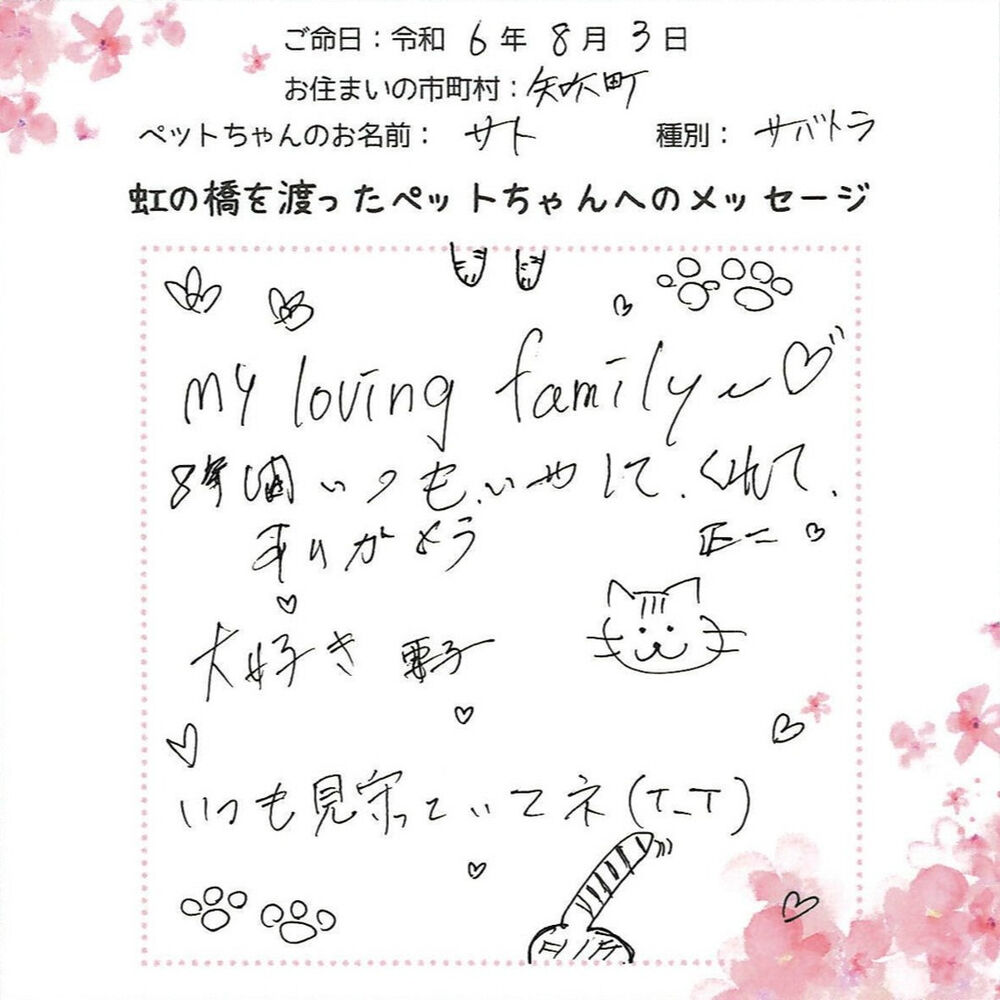 ご命日：令和 6 年 8 月 3 日
お住まいの市町村：矢吹町
ペットちゃんのお名前： サト 種別： サバトラ
虹の橋を渡ったペットちゃんへのメッセージ
my loving family～♡
8年間いつも、いやして、くれて、
ありがとう 正二♡
大好き
いつも見守っていてネ(T_T)